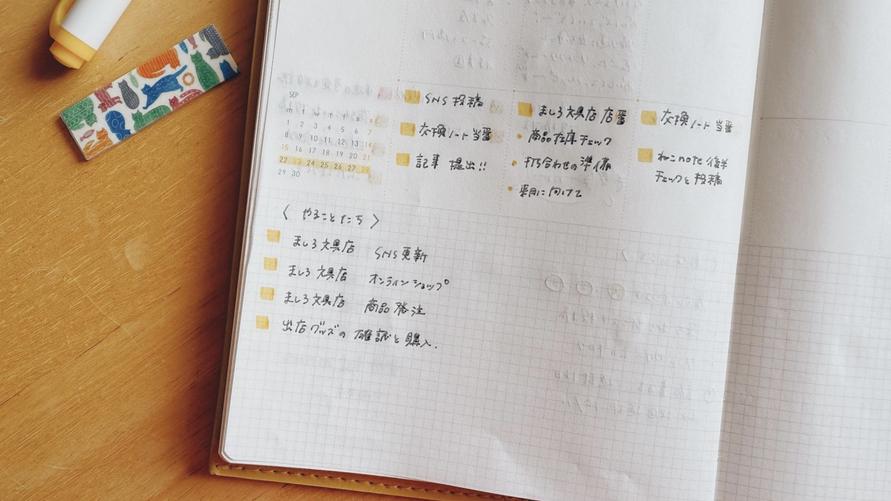 SEP
1 2 3 4 5 6 7
8 9 10 11 12 13 14
15 16 17 18 19 20 21
22 23 24 25 26 27 28
29 30
SNS 投稿
交換ノート当番
記事 提出!!
ましろ文具店 店番
商品在庫チェック
打ち合わせの準備
来月に向けて
交換ノート当番
ねこnote 後半
チェックと投稿
〈 やることたち 〉
ましろ文具店 SNS更新
ましろ文具店 オンラインショップ
ましろ文具店 商品発注
出店グッズの確認と購入.